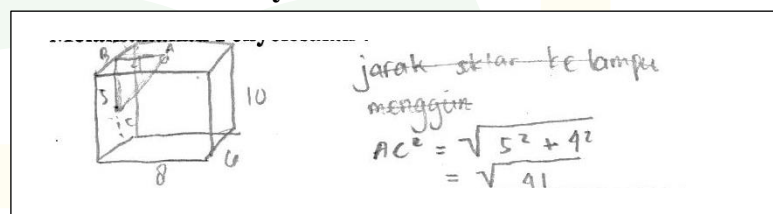 B A
5
C
10
6
8
jarak sklar ke lampu
menggun
AC² = √5² + 4²
= √41